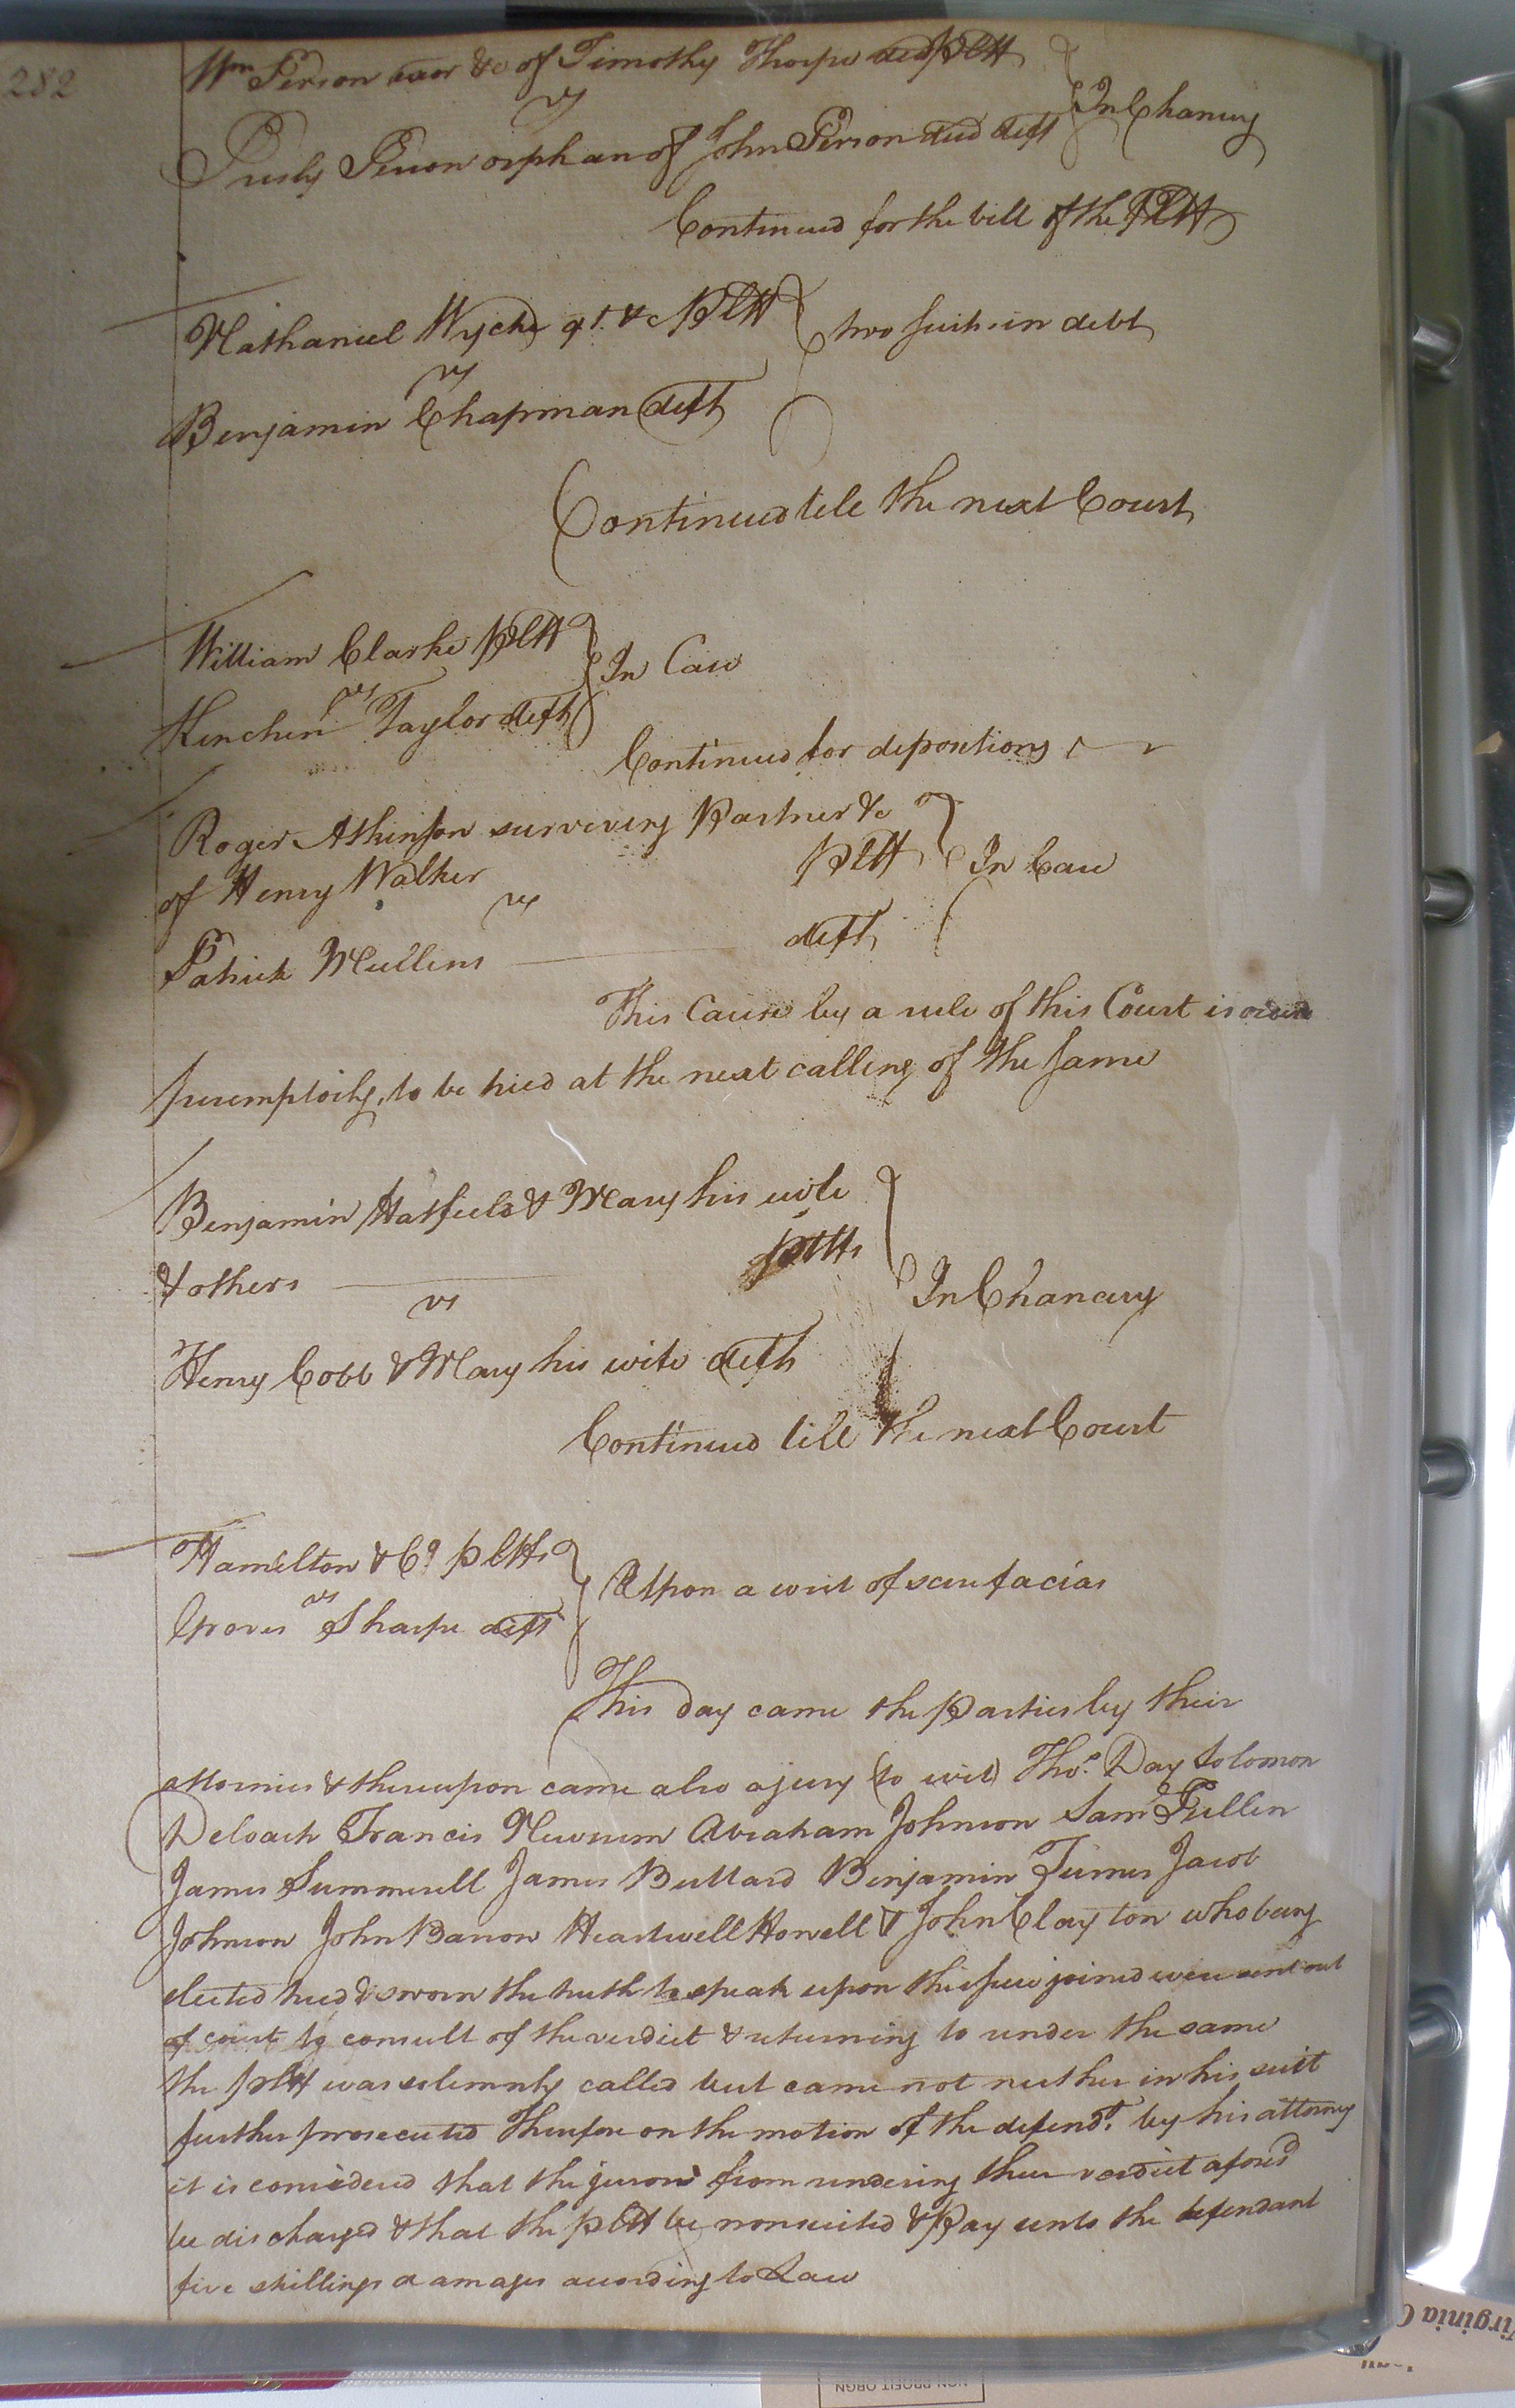 282
Wm Person exor &c of Timothy Thorpe decd pltf
vs
In Chancery
Person orphan of John Person decd deft
Continued for the bill of the Pltf
Nathaniel Wyche qt. &c Pltf
two suits in debt
vs
Benjamin Chapman deft
Continued till the next Court
William Clarke pltf
In Case
vs
Kinchen Taylor deft
Continued for depositions
Roger Atkinson surviving Partner &c
of Henry Walker pltf
In Case
vs
Patrick Mullens deft
This Cause by a rule of this Court is
peremptorily, to be tried at the next calling of the same
Benjamin Hatfield & Mary his wife
& others pltfs
In Chancery
vs
Henry Cobb & Mary his wife defts
Continued till the next Court
Hamilton & Co pltfs
Upon a writ of scire facias
vs
Sharpe deft
This day came the parties by their
attornies & thereupon came also a jury (to wit) Thos. Day Solomon
Deloach Francis Newsum Abraham Johnson Saml Pullen
James Summerell James Buttard Benjamin Turner Jacob
Johnson John Barron Heartwell Howell & John Clayton who being
elected tried & sworn the truth to speak upon the issue joined were sent out
of court to consult of the verdict & returning to render the same
the pltf was solemnly called but came not neither in his suit
further prosecuted Therefore on the motion of the defendt. by his attorney
it is considered that the jurors from rendering their verdict aforesd
be discharged & that the pltf be nonsuited & pay unto the defendant
five shillings damages according to Law
NON PROFIT ORGN
Virginia